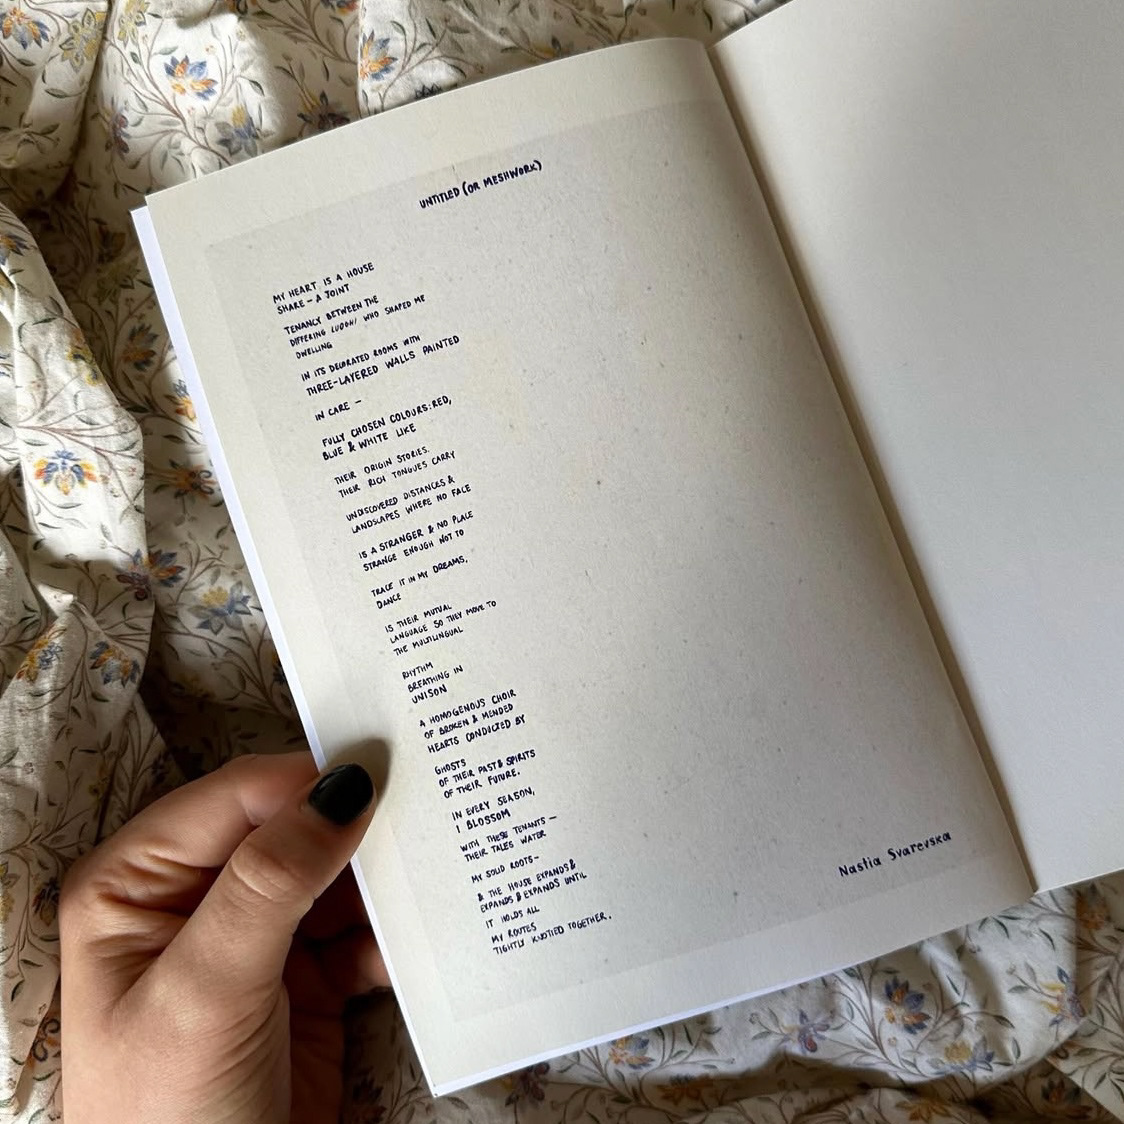 UNTITLED (OR MESHWORK)
MY HEART IS A HOUSE
SHARE – A JOINT
TENANCY BETWEEN THE
DIFFERING LUDOHI WHO SHAPED ME
DWELLING
IN ITS DECORATED ROOMS WITH
THREE-LAYERED WALLS PAINTED
IN CARE –
FULLY CHOSEN COLOURS: RED,
BLUE & WHITE LIKE
THEIR ORIGIN STORIES.
THEIR RICH TONGUES CARRY
UNDISCOVERED DISTANCES &
LANDSCAPES WHERE NO FACE
IS A STRANGER & NO PLACE
STRANGE ENOUGH NOT TO
TRACE IT IN MY DREAMS.
DANCE
IS THEIR MUTUAL
LANGUAGE SO THEY MOVE TO
THE MULTILINGUAL
RHYTHM
BREATHING IN
UNISON
A HOMOGENOUS CHOIR
OF BROKEN & MENDED
HEARTS CONDUCTED BY
GHOSTS
OF THEIR PAST & SPIRITS
OF THEIR FUTURE.
IN EVERY SEASON,
I BLOSSOM
WITH THESE TENANTS –
THEIR TALES WATER
MY SOLID ROOTS –
& THE HOUSE EXPANDS &
EXPANDS & EXPANDS UNTIL
IT HOLDS ALL
MY ROUTES
TIGHTLY KNOTTED TOGETHER.
Nastia Svarevska